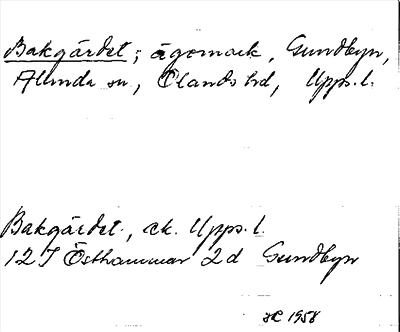 Bakgärdet; ägomark, Gundbyn,
Alunda sn, Olands hd, Upps. l.
Bakgärdet, ek. Upps. l.
12 I Östhammar 2d Gundbyn
1958